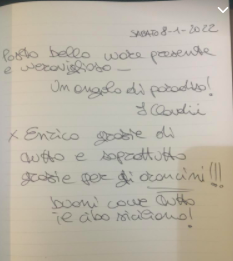 SABATO 8-1-2022
Posto bello mare presente
e meraviglioso —
Un angolo di paradiso!
x Enrico grazie di
tutto e soprattutto
grazie per gli arancini!!!
buoni come tutto
il cibo siciliano!